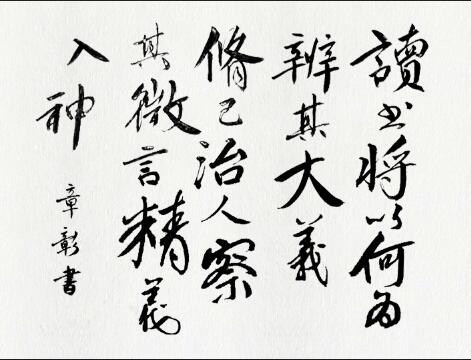 讀書將以何為
辨其大義
脩己治人察
其微言精義
入神
章彰書